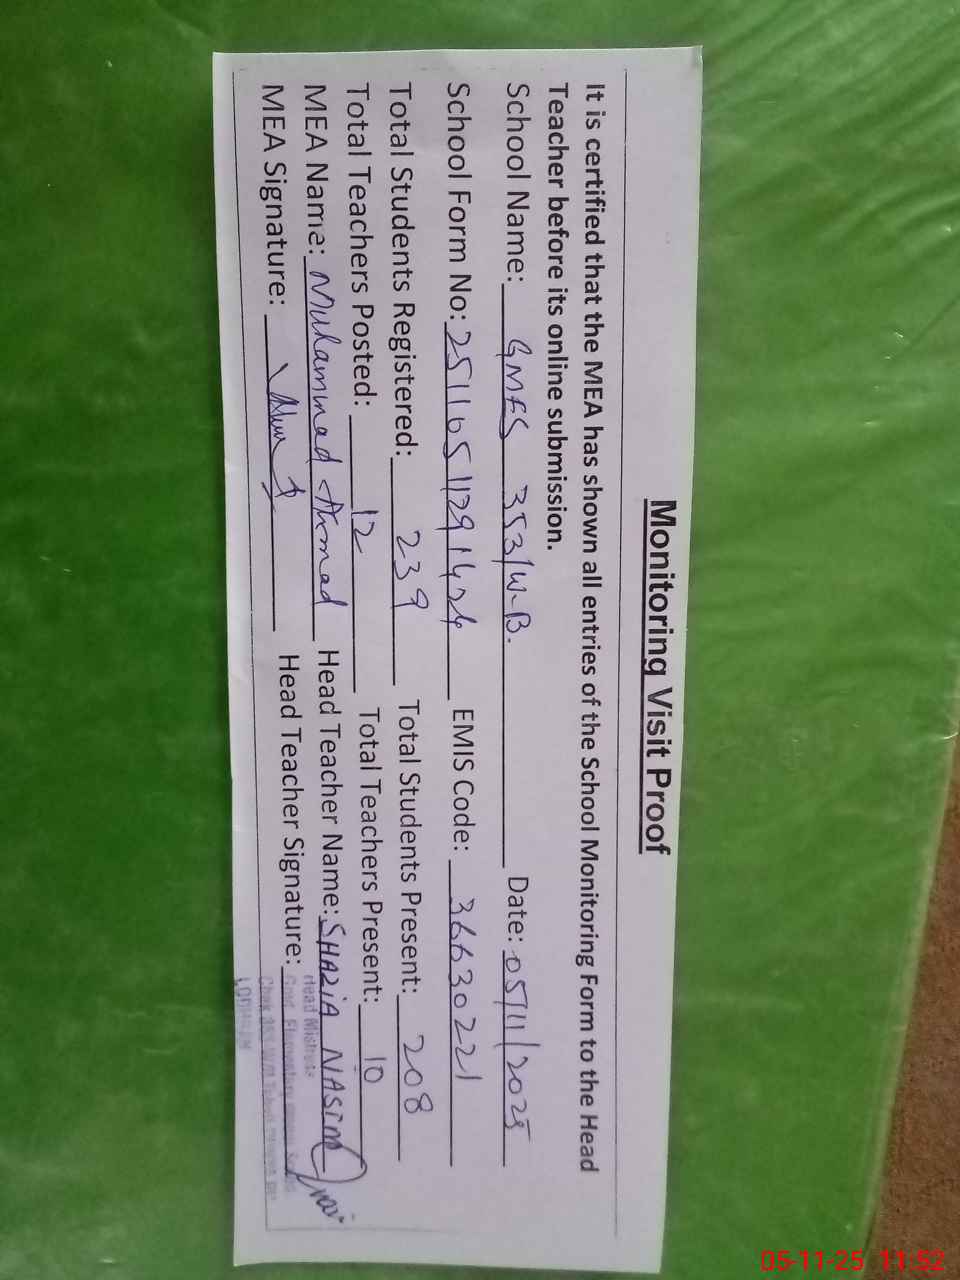 Monitoring Visit Proof
It is certified that the MEA has shown all entries of the School Monitoring Form to the Head
Teacher before its online submission.
School Name: GMES 353/W-B. Date: 05/11/2025
School Form No: 25110511291424 EMIS Code: 36630221
Total Students Registered: 239 Total Students Present: 208
Total Teachers Posted: 12 Total Teachers Present: 10
MEA Name: Muhammad Ahmad Head Teacher Name: SHAZIA NASIM
MEA Signature: Head Teacher Signature:
Head Mistress
Govt. Elementary School
Chak 353 W/B
LODHRAN
05-11-25 11:52